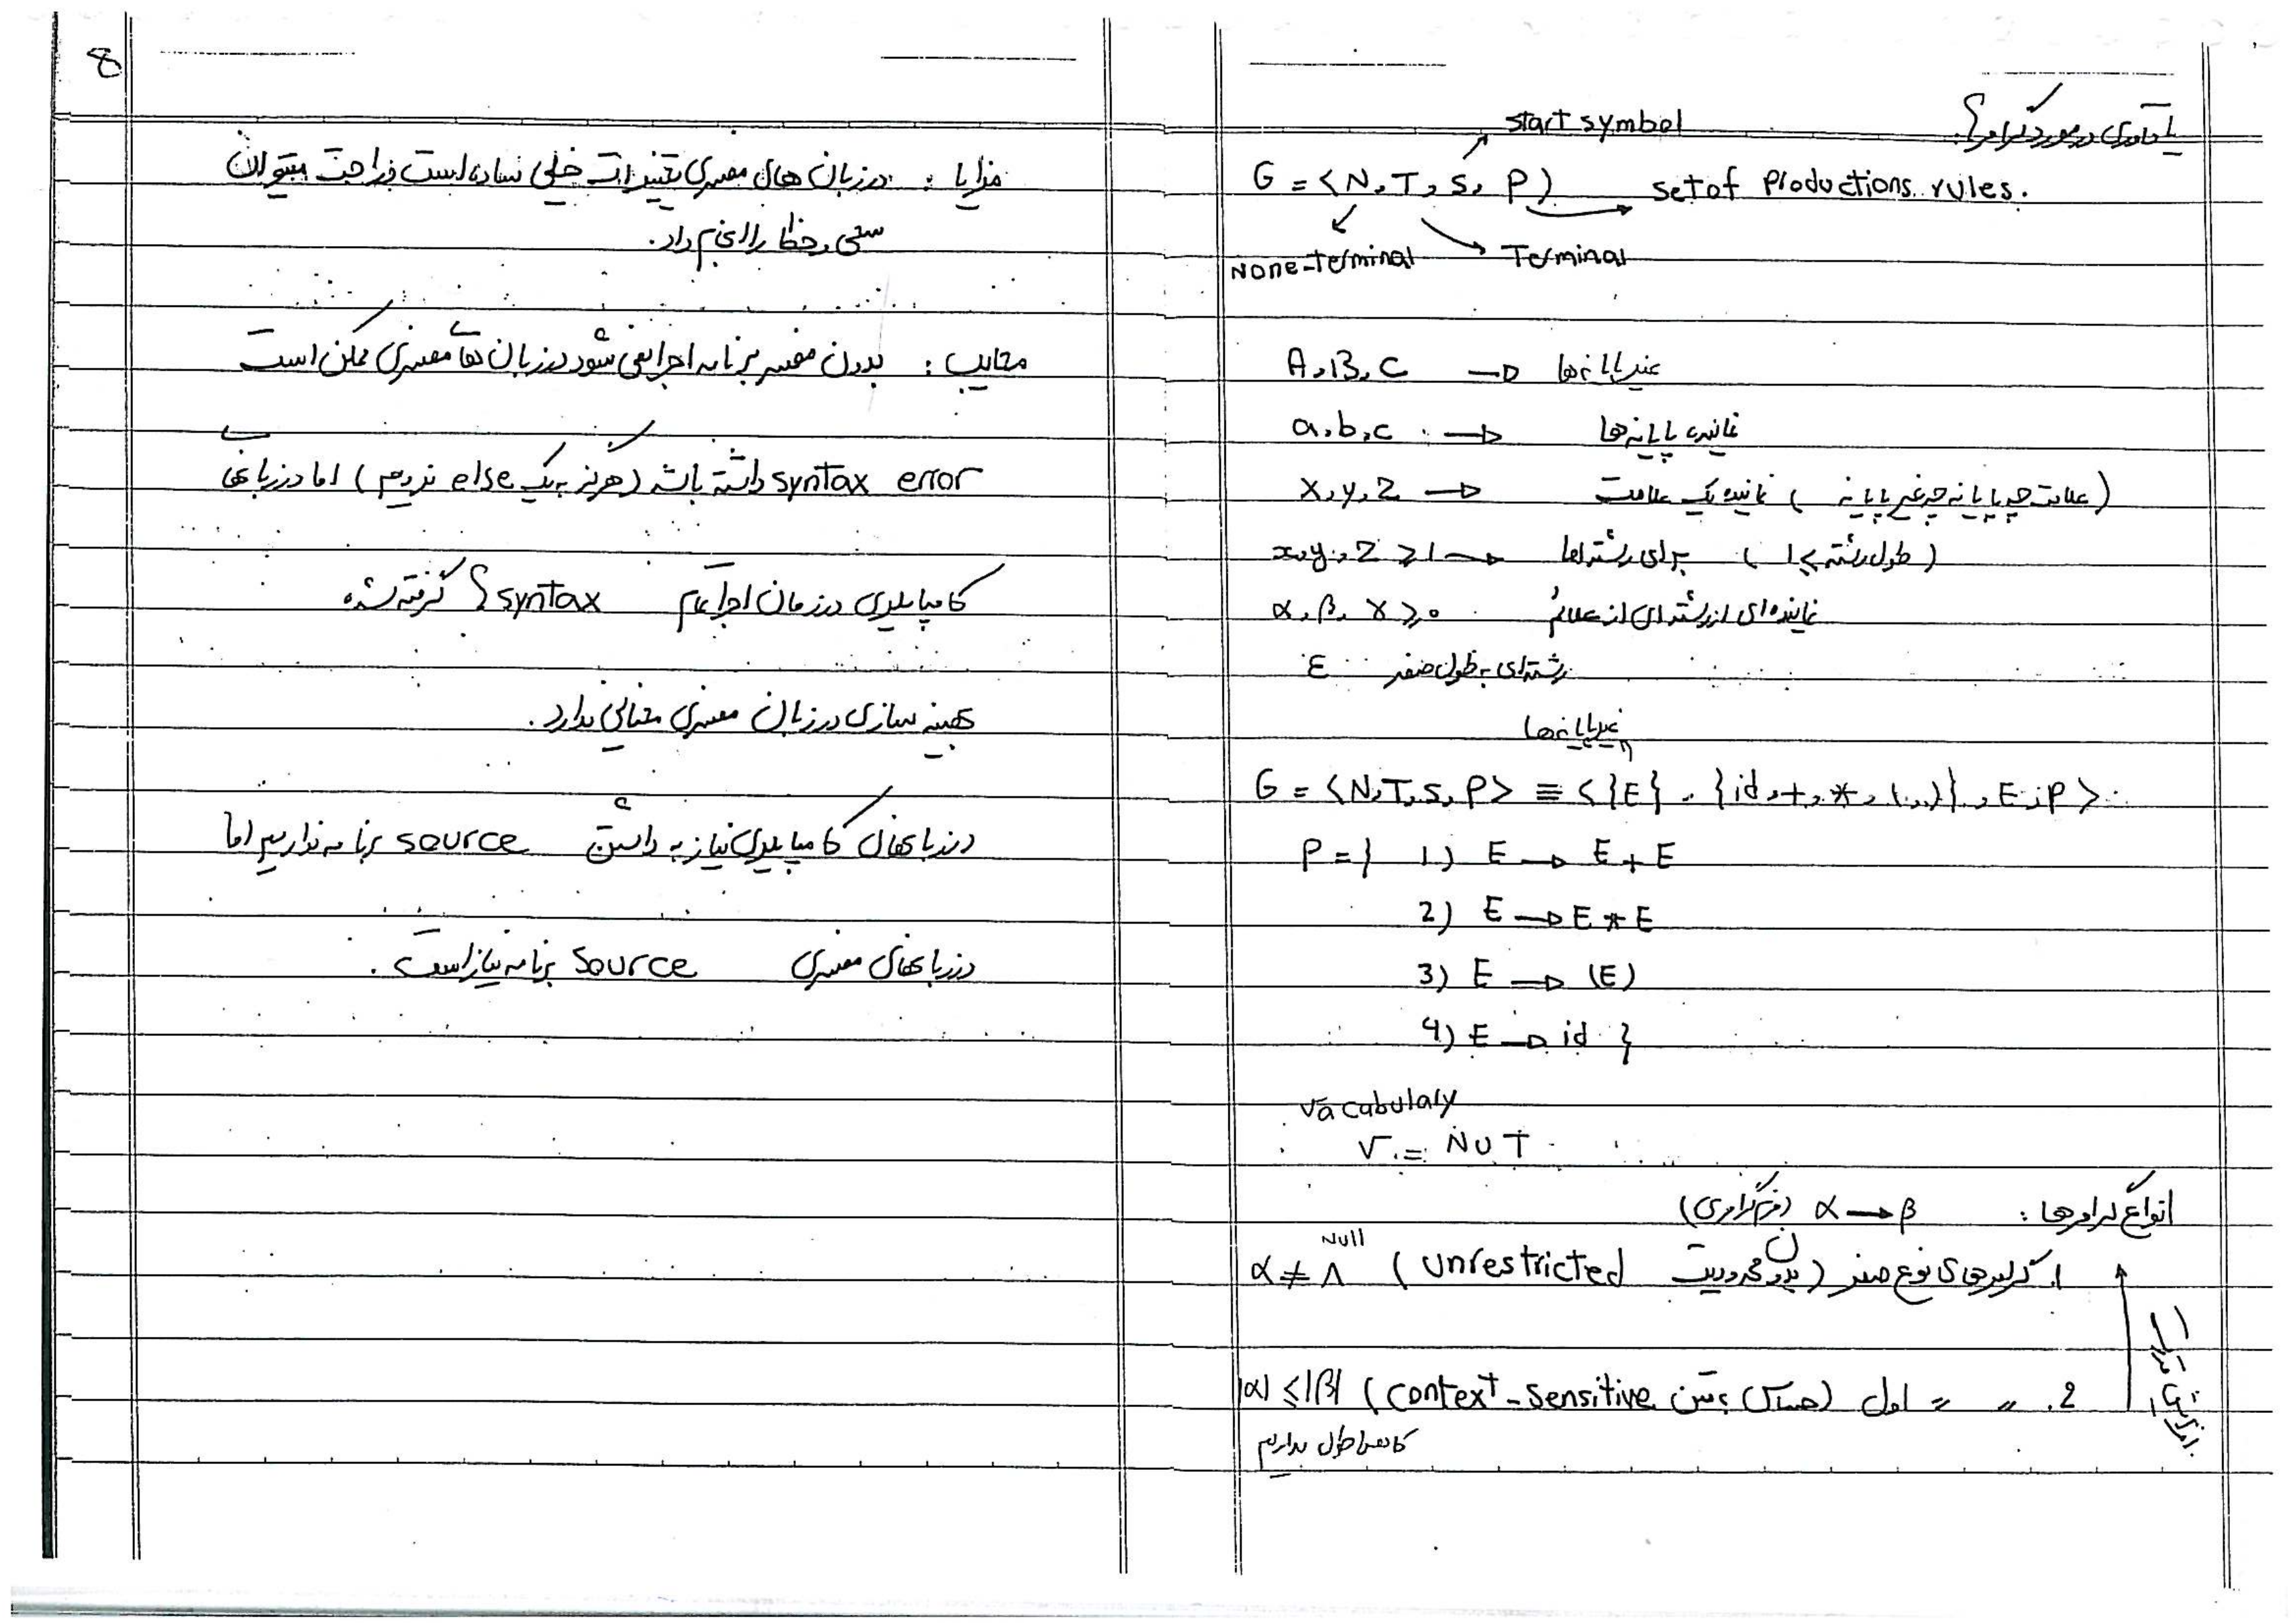 یادآوری در مورد گرامر؟
start symbol
G = <N, T, S, P) set of Productions rules.
None-terminal Terminal
A, B, C → غیرپایانه‌ها
a, b, c → نماینده پایانه‌ها
X, Y, Z → نماینده یک علامت (علامت چه پایانه چه غیر پایانه)
x, y, z ≥ 1 → برای رشته‌ها (طول رشته ≥ 1)
α, β, γ ≥ 0 نماینده‌ای از رشته‌ای از علائم
ε رشته‌ای به طول صفر
غیرپایانه‌ها
G = <N, T, S, P> ≡ <{E}, {id, +, *, (, )}, E, P>
P = { 1) E → E + E
2) E → E * E
3) E → (E)
4) E → id }
Vacabulary
V = N ∪ T
انواع گرامرها: α → β (فرم گرامری)
1. گرامرهای نوع صفر (بدون محدودیت unrestricted) α ≠ Λ Null
2. 〃 〃 اول (حساس به متن context-sensitive) |α| ≤ |β|
کاهش طول نداریم
8
مزایا: در زبان های مفسری تغییرات خیلی ساده است و راحت میتوان
سعی و خطا را انجام داد.
معایب: بدون مفسر برنامه اجرا نمی شود در زبان های مفسری ممکن است
syntax error داشته باشد (هرگز به یک else نرویم) اما در زبانهای
کامپایلری در زمان اجرا تمام syntax ها گرفته شده
بهینه سازی در زبان مفسری معنائی ندارد.
در زبانهای کامپایلری نیاز به داشتن source برنامه نداریم اما
در زبانهای مفسری source برنامه نیاز است.